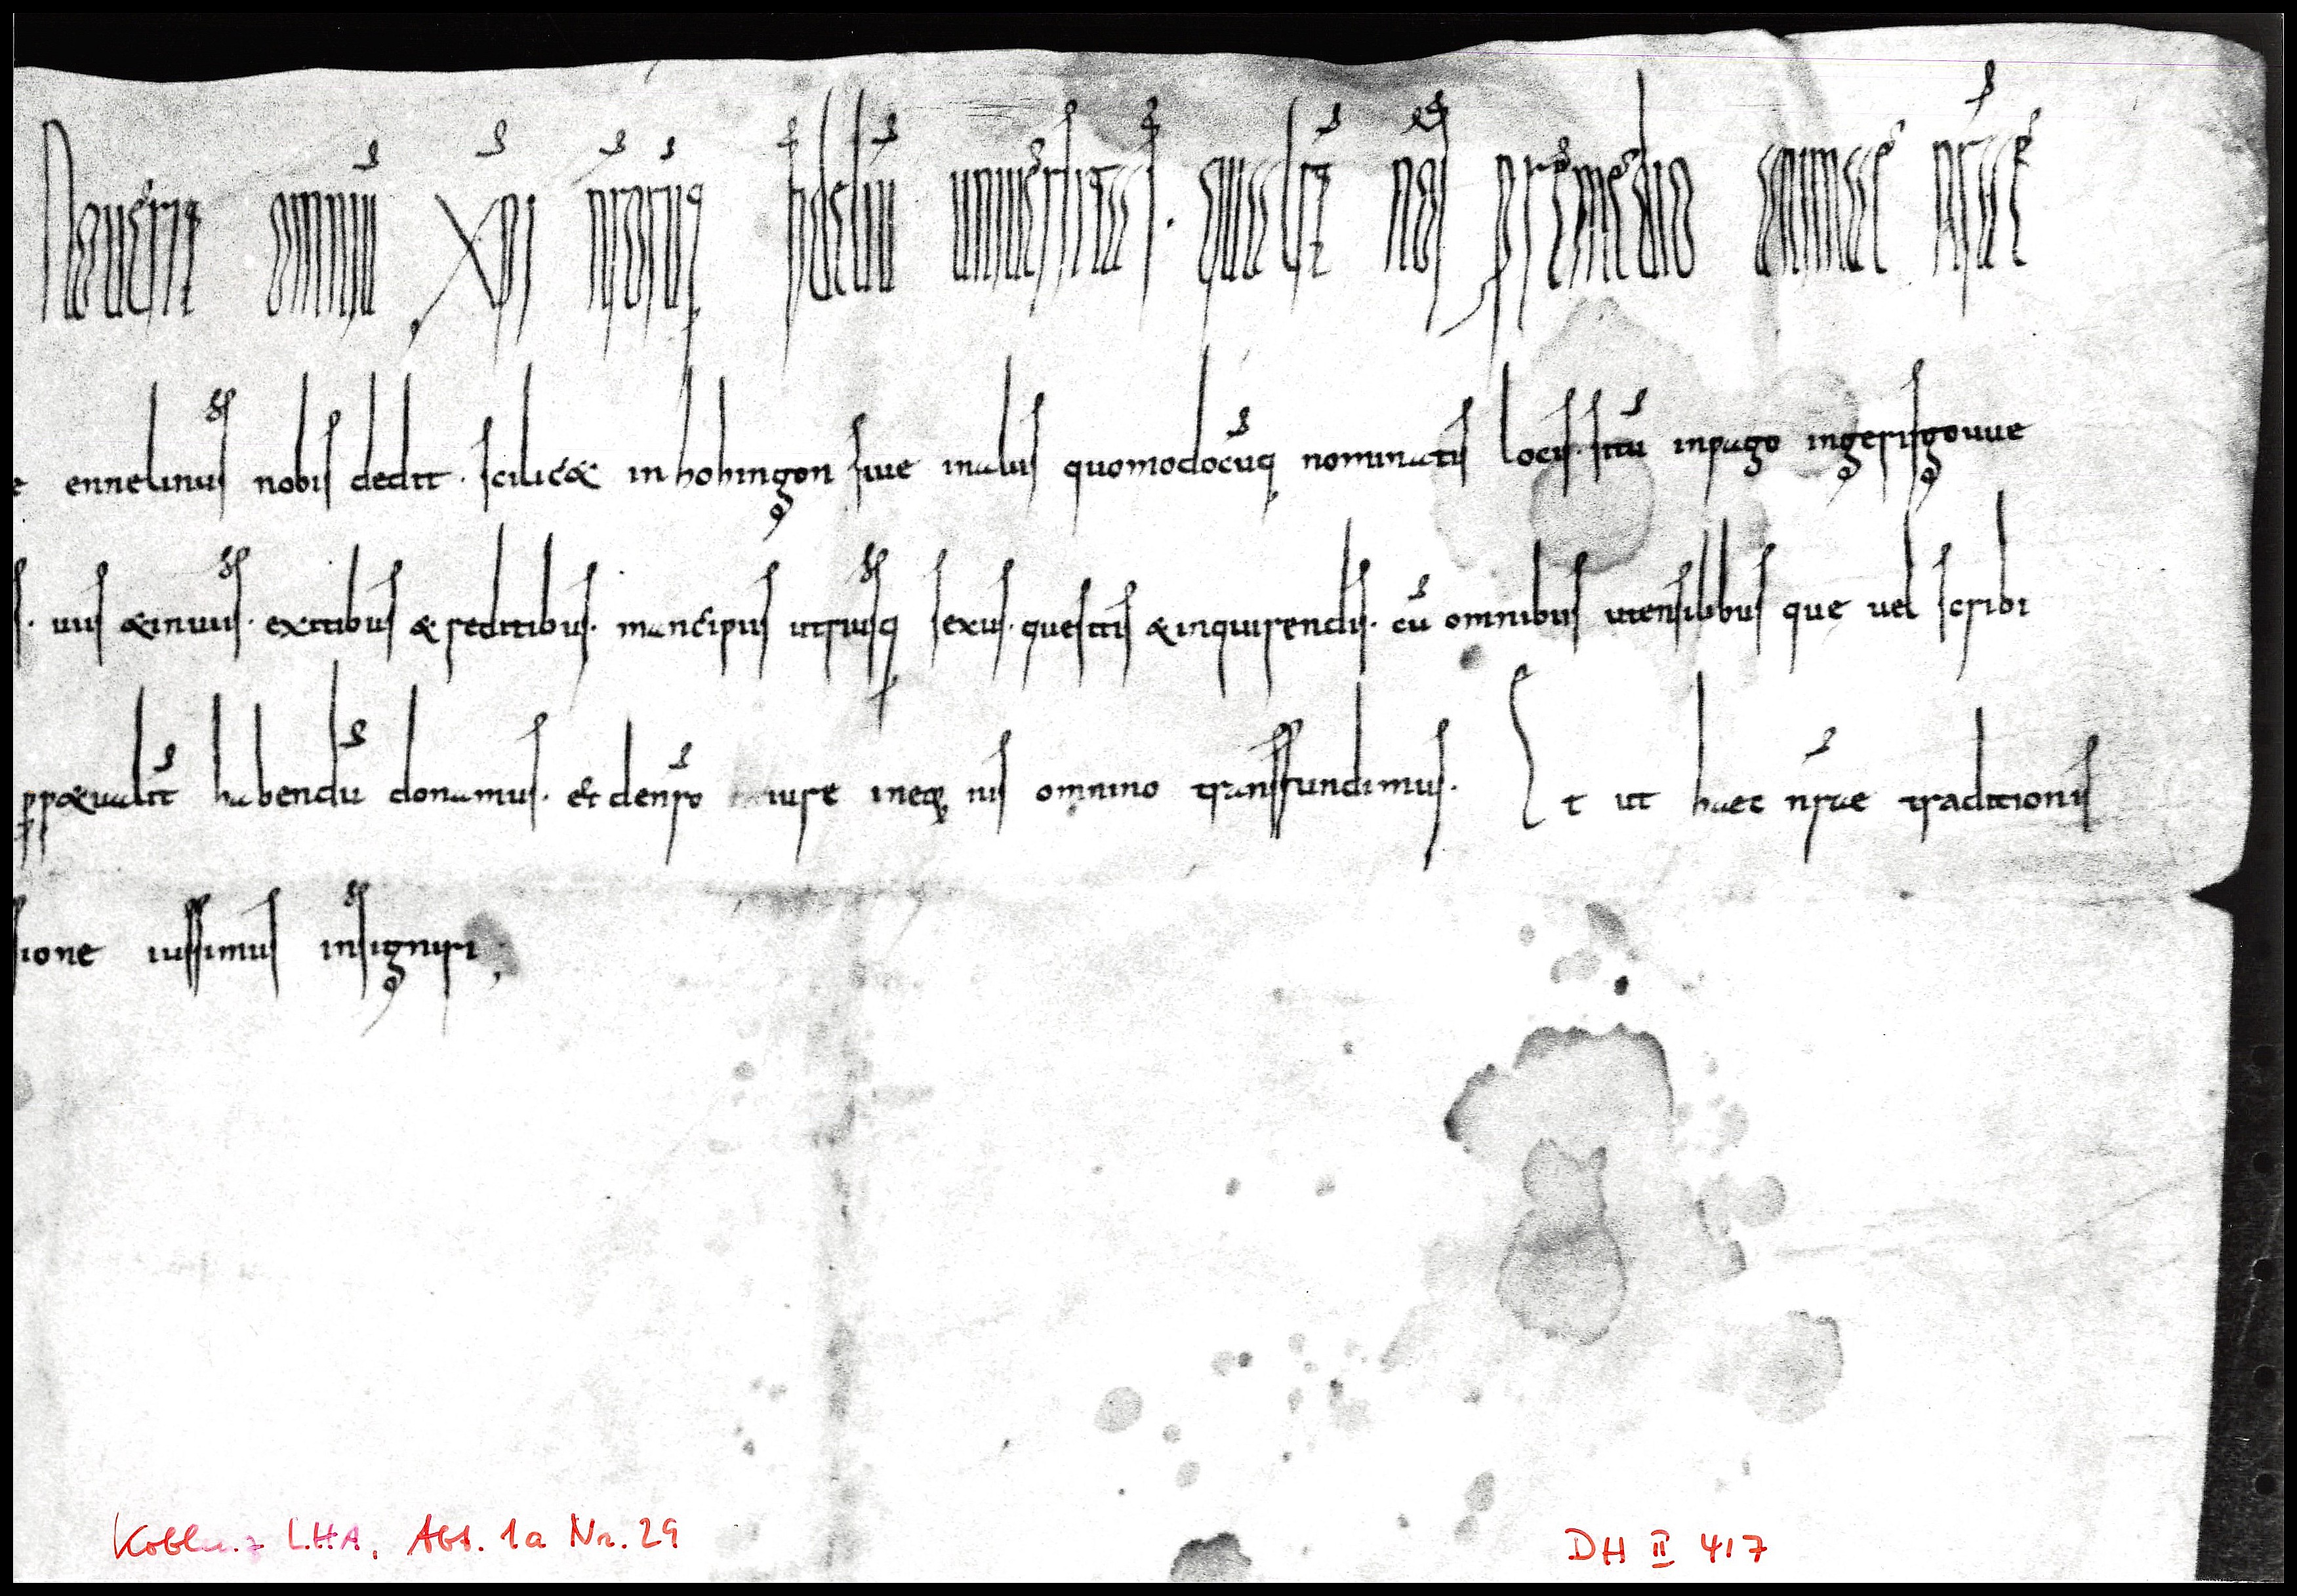 Noverit omniū xpi nrorūq fideliū universitas. qualit nos p remedio animae nrae
e ennelinus nobis dedit. scilicet in hohingon sive in aliis quomodocūq nominatis locis. sitū in pago ingerisgouue
s. viis & inviis. exitibus & reditibus. mancipiis utriusq sexus. questis & inquirendis. cū omnibus utensilibus que vel scribi
ppetualit habendū donamus. et de nro iure in eq; ius omnino transfundimus. Et ut haec nrae traditionis
sione iussimus insigniri;
Koblenz LHA, Abt. 1a Nr. 29
DH II 417